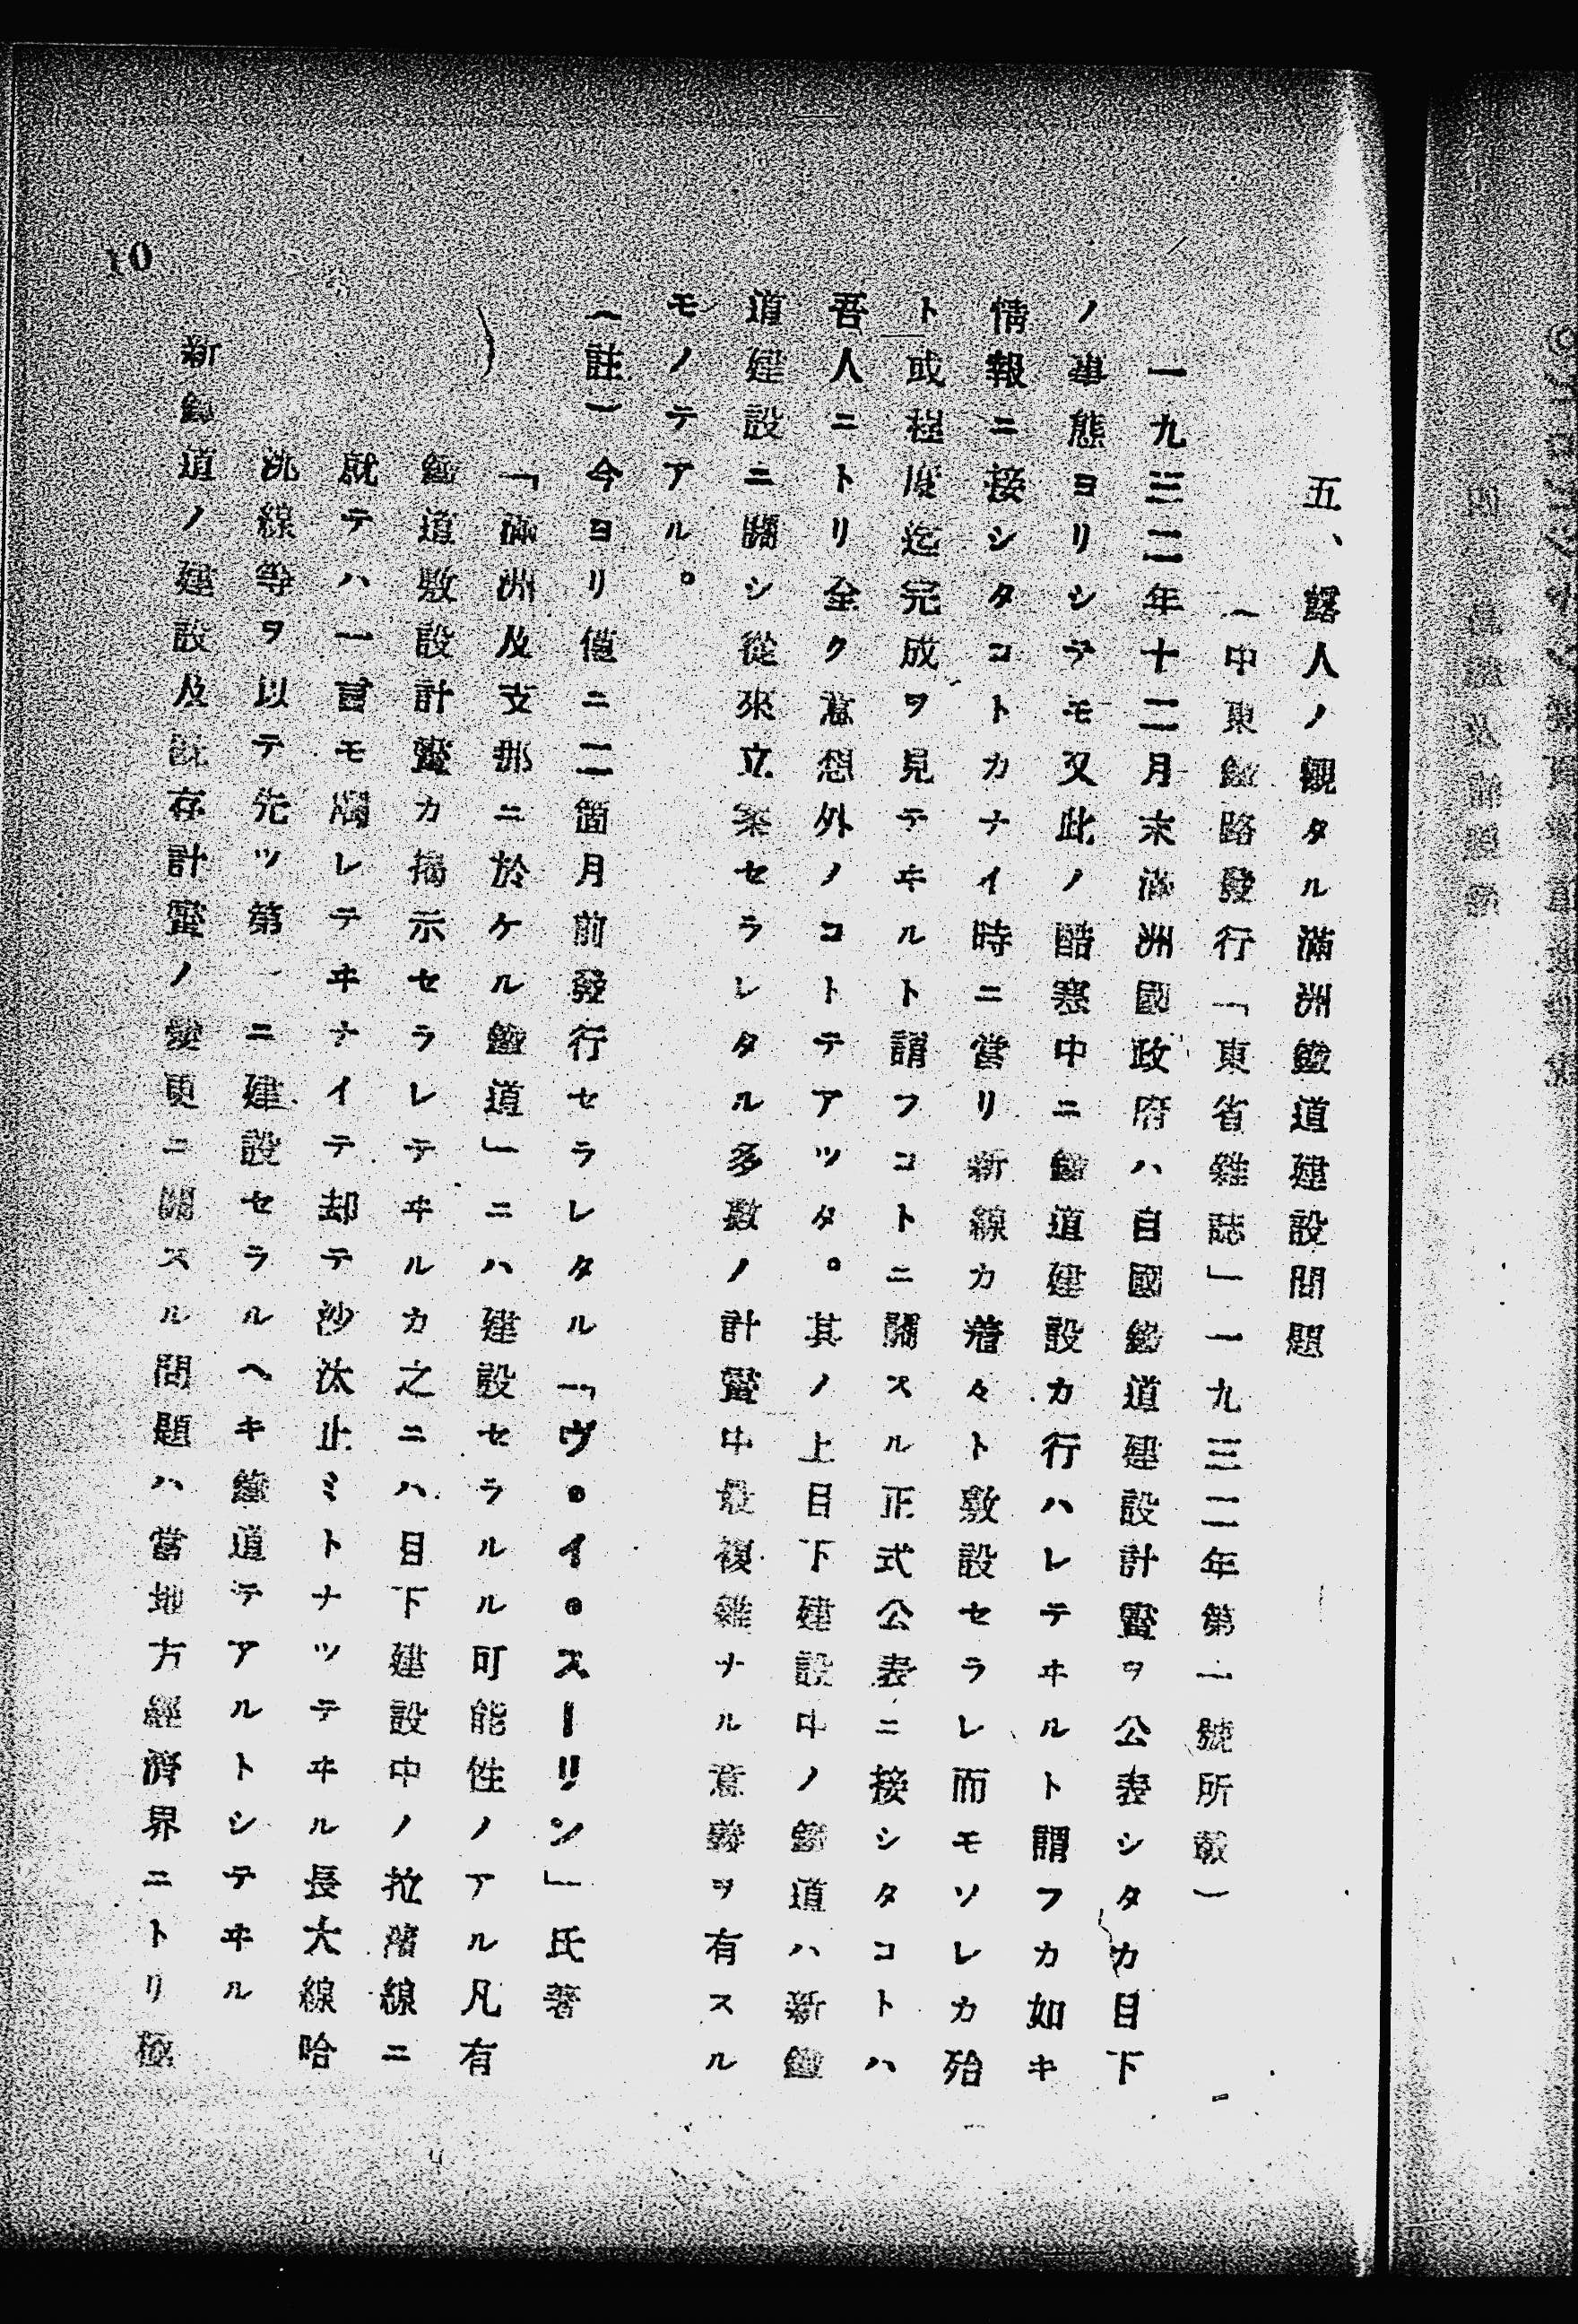 五、露人ノ觀タル滿洲鐵道建設問題
（中東鐵路發行「東省雜誌」一九三二年第一號所載）
一九三二年十二月末滿洲國政府ハ自國鐵道建設計畫ヲ公表シタカ目下
ノ事態ヨリシテモ又此ノ酷寒中ニ鐵道建設カ行ハレテヰルト謂フカ如キ
情報ニ接シタコトカナイ時ニ當リ新線カ着々ト敷設セラレ而モソレカ殆
ト或程度迄完成ヲ見テヰルト謂フコトニ關スル正式公表ニ接シタコトハ
吾人ニトリ全ク意想外ノコトテアツタ。其ノ上目下建設中ノ鐵道ハ新鐵
道建設ニ關シ從來立案セラレタル多數ノ計畫中最複雜ナル意義ヲ有スル
モノテアル。
（註）今ヨリ僅ニ二箇月前發行セラレタル「ヴ・イ・スーリン」氏著
「滿洲及支那ニ於ケル鐵道」ニハ建設セラルル可能性ノアル凡有
鐵道敷設計畫カ揭示セラレテヰルカ之ニハ目下建設中ノ拉濱線ニ
就テハ一言モ觸レテヰナイテ却テ沙汰止ミトナツテヰル長大線哈
洮線等ヲ以テ先ツ第一ニ建設セラルヘキ鐵道テアルトシテヰル
新鐵道ノ建設及既存計畫ノ變更ニ關スル問題ハ當地方經濟界ニトリ極
10